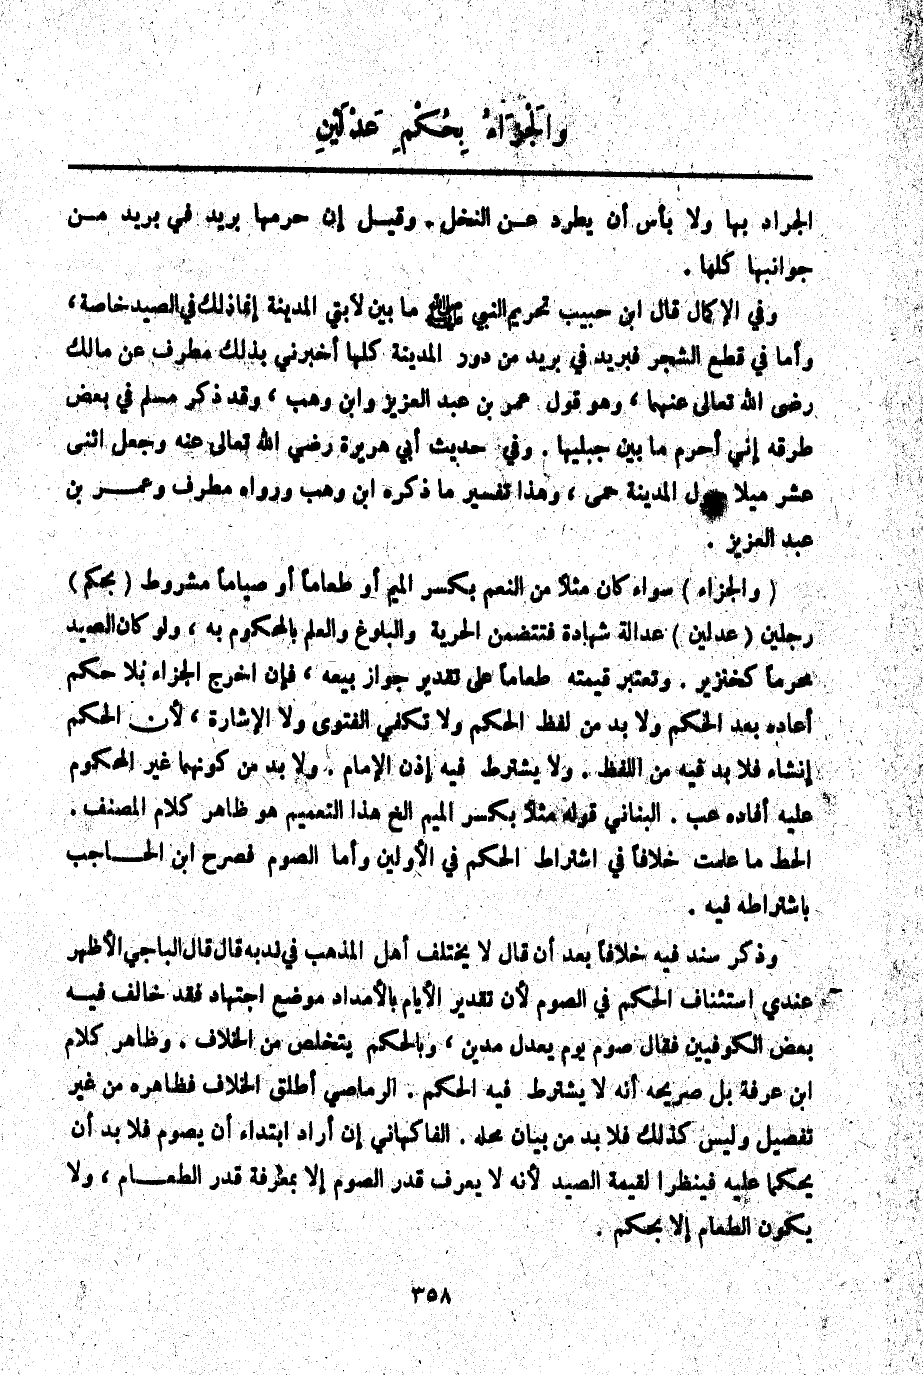 وَالْجَزَاءُ بِحُكْمِ عَدْلَيْنِ
الجراد بها ولا بأس أن يطرد عـن النخل . وقيـل إن حرمها بريد في بريد مـن
جوانبها كلها .
وفي الإكمال قال ابن حبيب تحريم النبي ﷺ ما بين لابتي المدينة إنما ذلك في الصيد خاصة ،
وأما في قطع الشجر فبريد في بريد من دور المدينة كلها أخبرني بذلك مطرف عن مالك
رضى الله تعالى عنهما ، وهو قول عمر بن عبد العزيز وابن وهب ، وقد ذكر مسلم في بعض
طرقه إني أحرم ما بين جبليها . وفي حديث أبي هريرة رضي الله تعالى عنه وجعل اثنى
عشر ميلا حول المدينة حمى ، وهذا تفسير ما ذكره ابن وهب ورواه مطرف وعمـــر بن
عبد العزيز .
( والجزاء ) سواء كان مثلاً من النعم بكسر الميم أو طعاماً أو صياماً مشروط ( بحكم )
رجلين ( عدلين ) عدالة شهادة فتتضمن الحرية والبلوغ والعلم بالمحكوم به ، ولو كان الصيد
محرماً كخنزير . وتعتبر قيمته طعاماً على تقدير جواز بيعه ، فإن اخرج الجزاء بلا حكم
أعاده بعد الحكم ولا بد من لفظ الحكم ولا تكفي الفتوى ولا الإشارة ، لأن الحكم
إنشاء فلا بد فيه من اللفظ . ولا يشترط فيه إذن الإمام . ولا بد من كونهما غير المحكوم
عليه أفاده عب . البناني قوله مثلاً بكسر الميم الخ هذا التعميم هو ظاهر كلام المصنف .
الحط ما علمت خلافاً في اشتراط الحكم في الأولين وأما الصوم فصرح ابن الحـــاجب
باشتراطه فيه .
وذكر سند فيه خلافاً بعد أن قال لا يختلف أهل المذهب في ندبه قال قال الباجي الأظهر
عندي استئناف الحكم في الصوم لأن تقدير الأيام بالأمداد موضع اجتهاد فقد خالف فيـه
بعض الكوفيين فقال صوم يوم يعدل مدين ، وبالحكم يتخلص من الخلاف . وظاهر كلام
ابن عرفة بل صريحه أنه لا يشترط فيه الحكم . الرماصي أطلق الخلاف فظاهره من غير
تفصيل وليس كذلك فلا بد من بيان محله . الفاكهاني إن أراد ابتداء أن يصوم فلا بد أن
يحكما عليه فينظرا لقيمة الصيد لأنه لا يعرف قدر الصوم إلا بمعرفة قدر الطعـــام ، ولا
يكون الطعام إلا بحكم .
٣٥٨